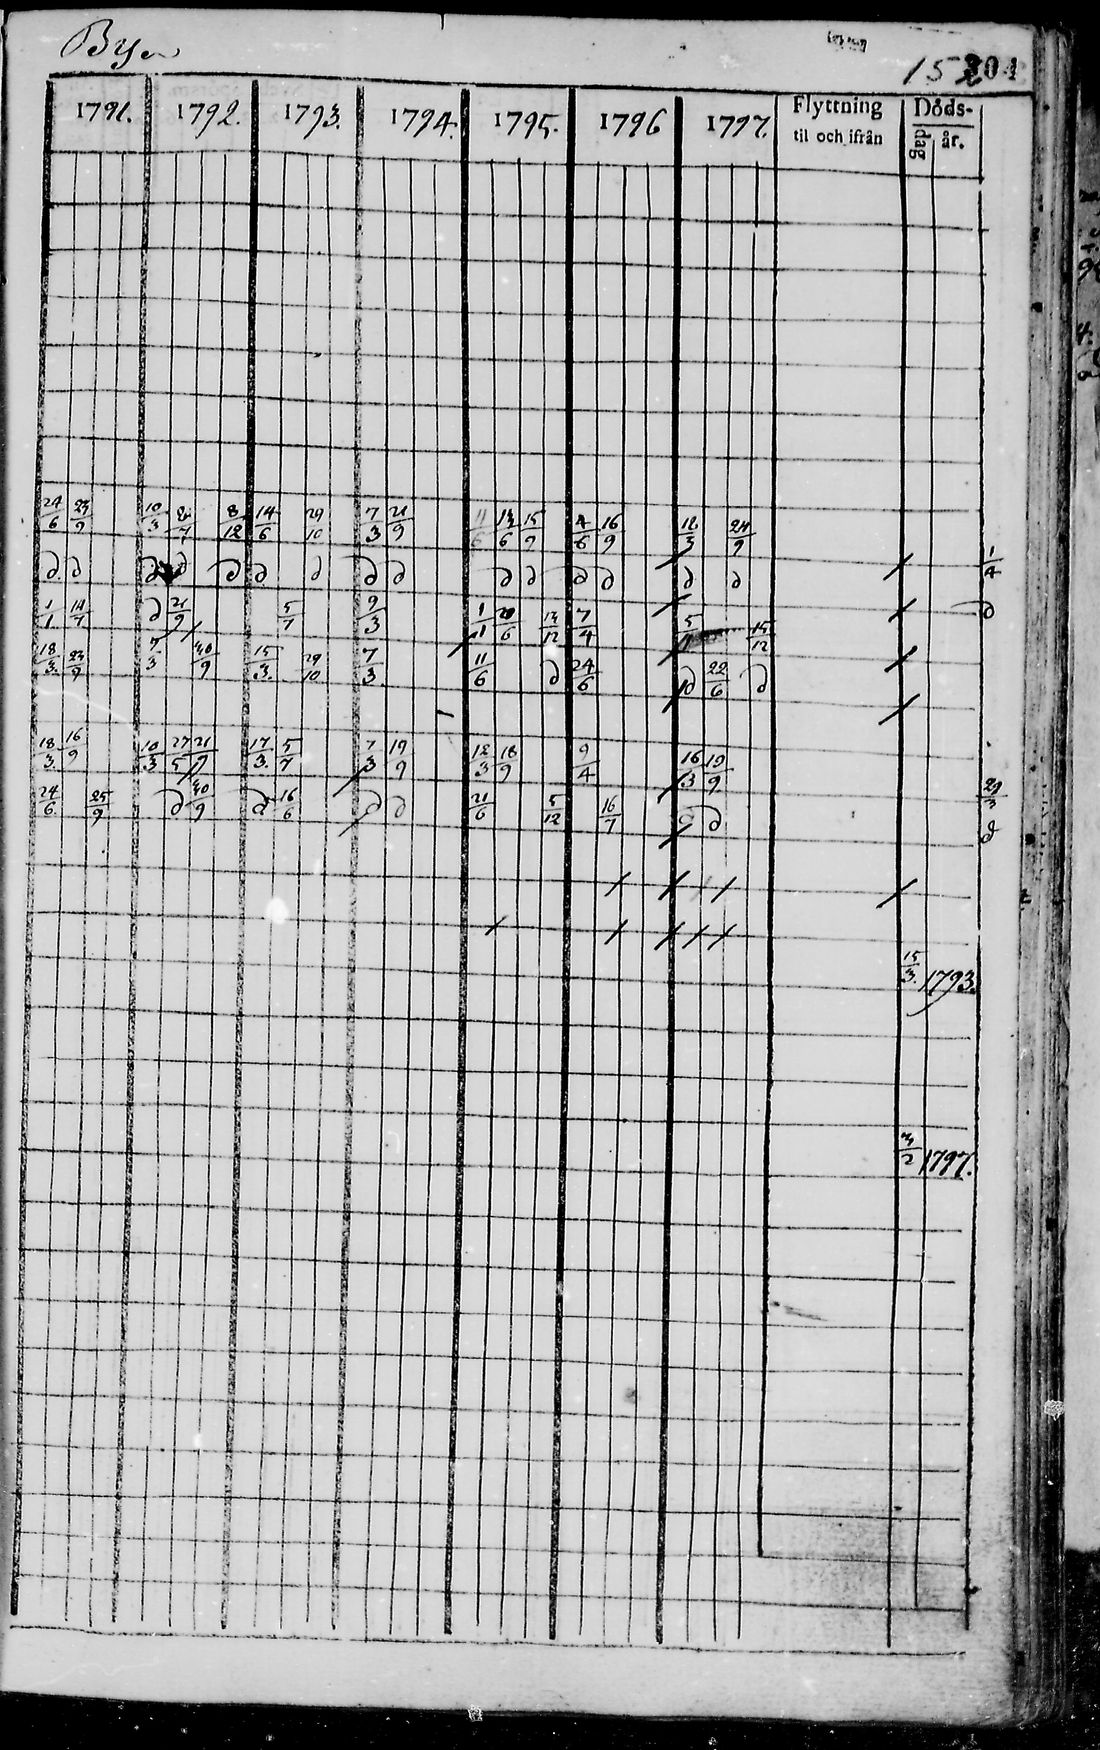 Byn
152 304
1791. 1792. 1793. 1794. 1795. 1796 1797. Flyttning til och ifrån Döds- dag år.
24/6 23/9 10/3 8/7 8/12 14/6 29/10 7/3 21/9 11/6 14/6 15/9 4/6 16/9 12/3 24/9
∂ ∂ ∂ ∂ ∂ ∂ ∂ ∂ ∂ ∂ ∂ ∂ ∂ ∂ 1/4
1/1 14/7 ∂ 21/9 5/7 9/3 1/1 20/6 13/12 7/4 5/11 15/12 ∂
18/3 23/9 7/3 30/9 15/3 29/10 7/3 11/6 ∂ 24/6 ∂ 22/6 ∂
18/3 16/9 10/3 27/5 21/9 17/3 5/7 7/3 19/9 12/3 18/9 9/4 16/3 19/9
24/6 25/9 ∂ 30/9 ∂ 16/6 ∂ ∂ 21/6 5/12 16/7 ∂ ∂ 29/3
∂
15/3 1793.
3/2 1797.